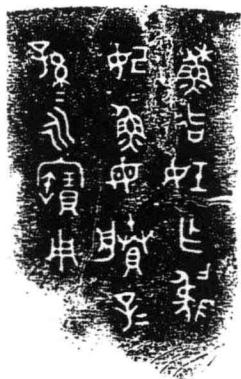 穌冶妊乍虢
妃魚母賸子
孫=永寶用